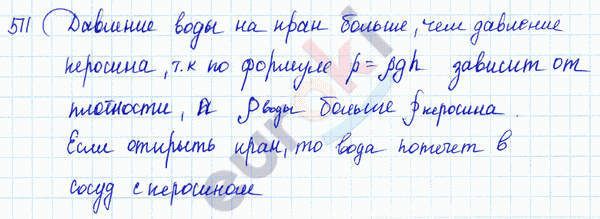 511) Давление воды на кран больше, чем давление
керосина, т.к по формуле p = ρgh зависит от
плотности, а ρ воды больше ρ керосина.
Если открыть кран, то вода потечет в
сосуд с керосином
euroki